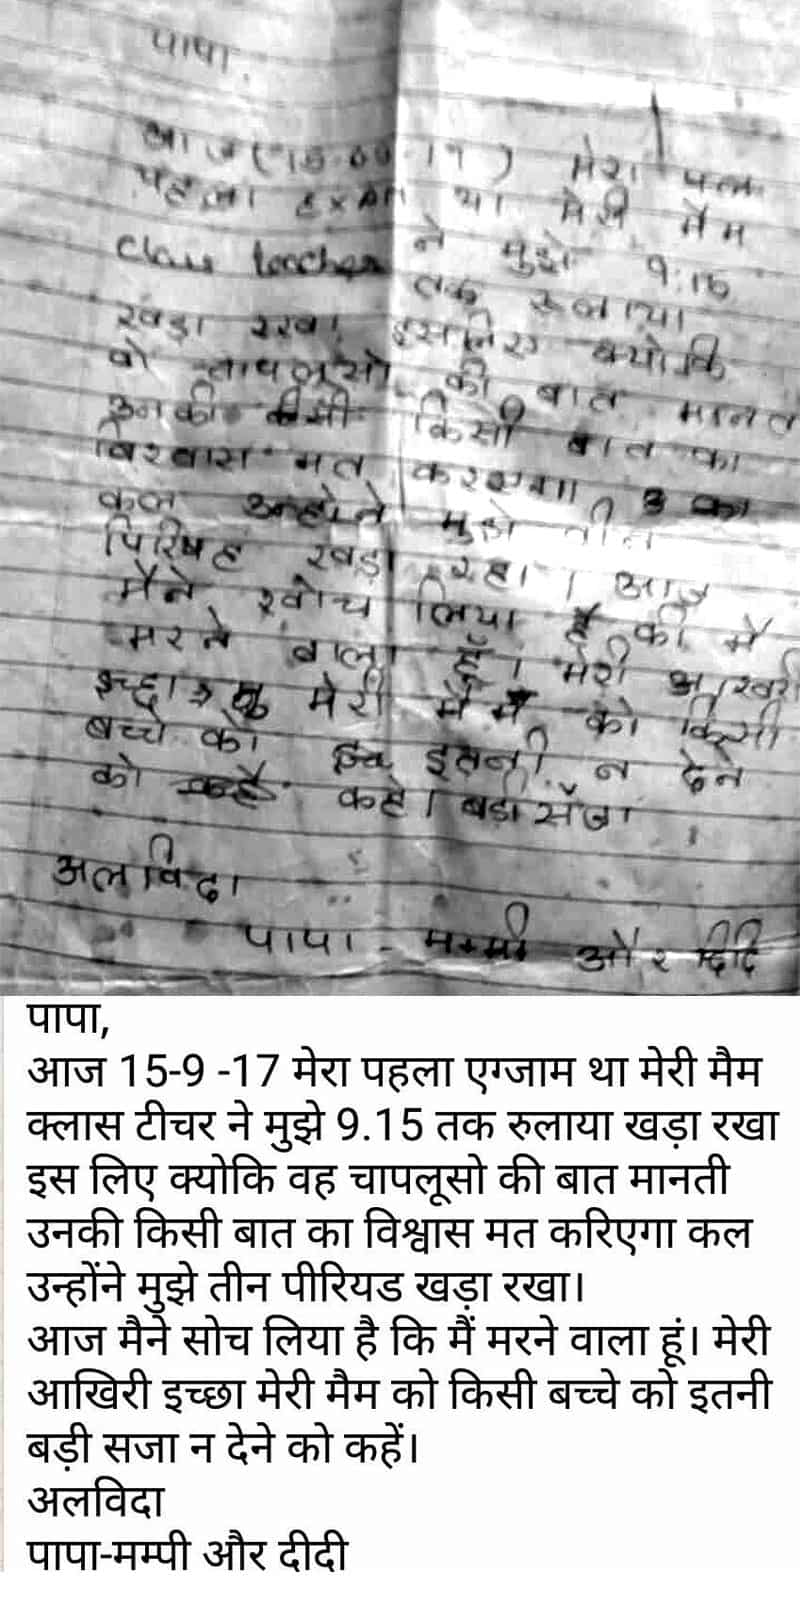 पापा.
आज (15.09.17) मेरा
पहला EXAM था मेरी मैम
class teacher ने मुझे 9:15
तक रूलाया
खड़ा रखा इसलिए क्योकि
वो चापलूसो की बात मानत
उनकी किसी बात का
विश्वास मत
कल उन्होने मुझे तीन
खड़ा रहा। आज
मैने लिया है की मै
मरने वाला हूँ। मेरी
मेरी मैम को किसी
बच्चे को इतनी न देने
को कहे। बड़ी सजा
अलविदा
पापा - मम्मी और दिदि
पापा,
आज 15-9 -17 मेरा पहला एग्जाम था मेरी मैम
क्लास टीचर ने मुझे 9.15 तक रुलाया खड़ा रखा
इस लिए क्योकि वह चापलूसो की बात मानती
उनकी किसी बात का विश्वास मत करिएगा कल
उन्होंने मुझे तीन पीरियड खड़ा रखा।
आज मैने सोच लिया है कि मैं मरने वाला हूं। मेरी
आखिरी इच्छा मेरी मैम को किसी बच्चे को इतनी
बड़ी सजा न देने को कहें।
अलविदा
पापा-मम्पी और दीदी